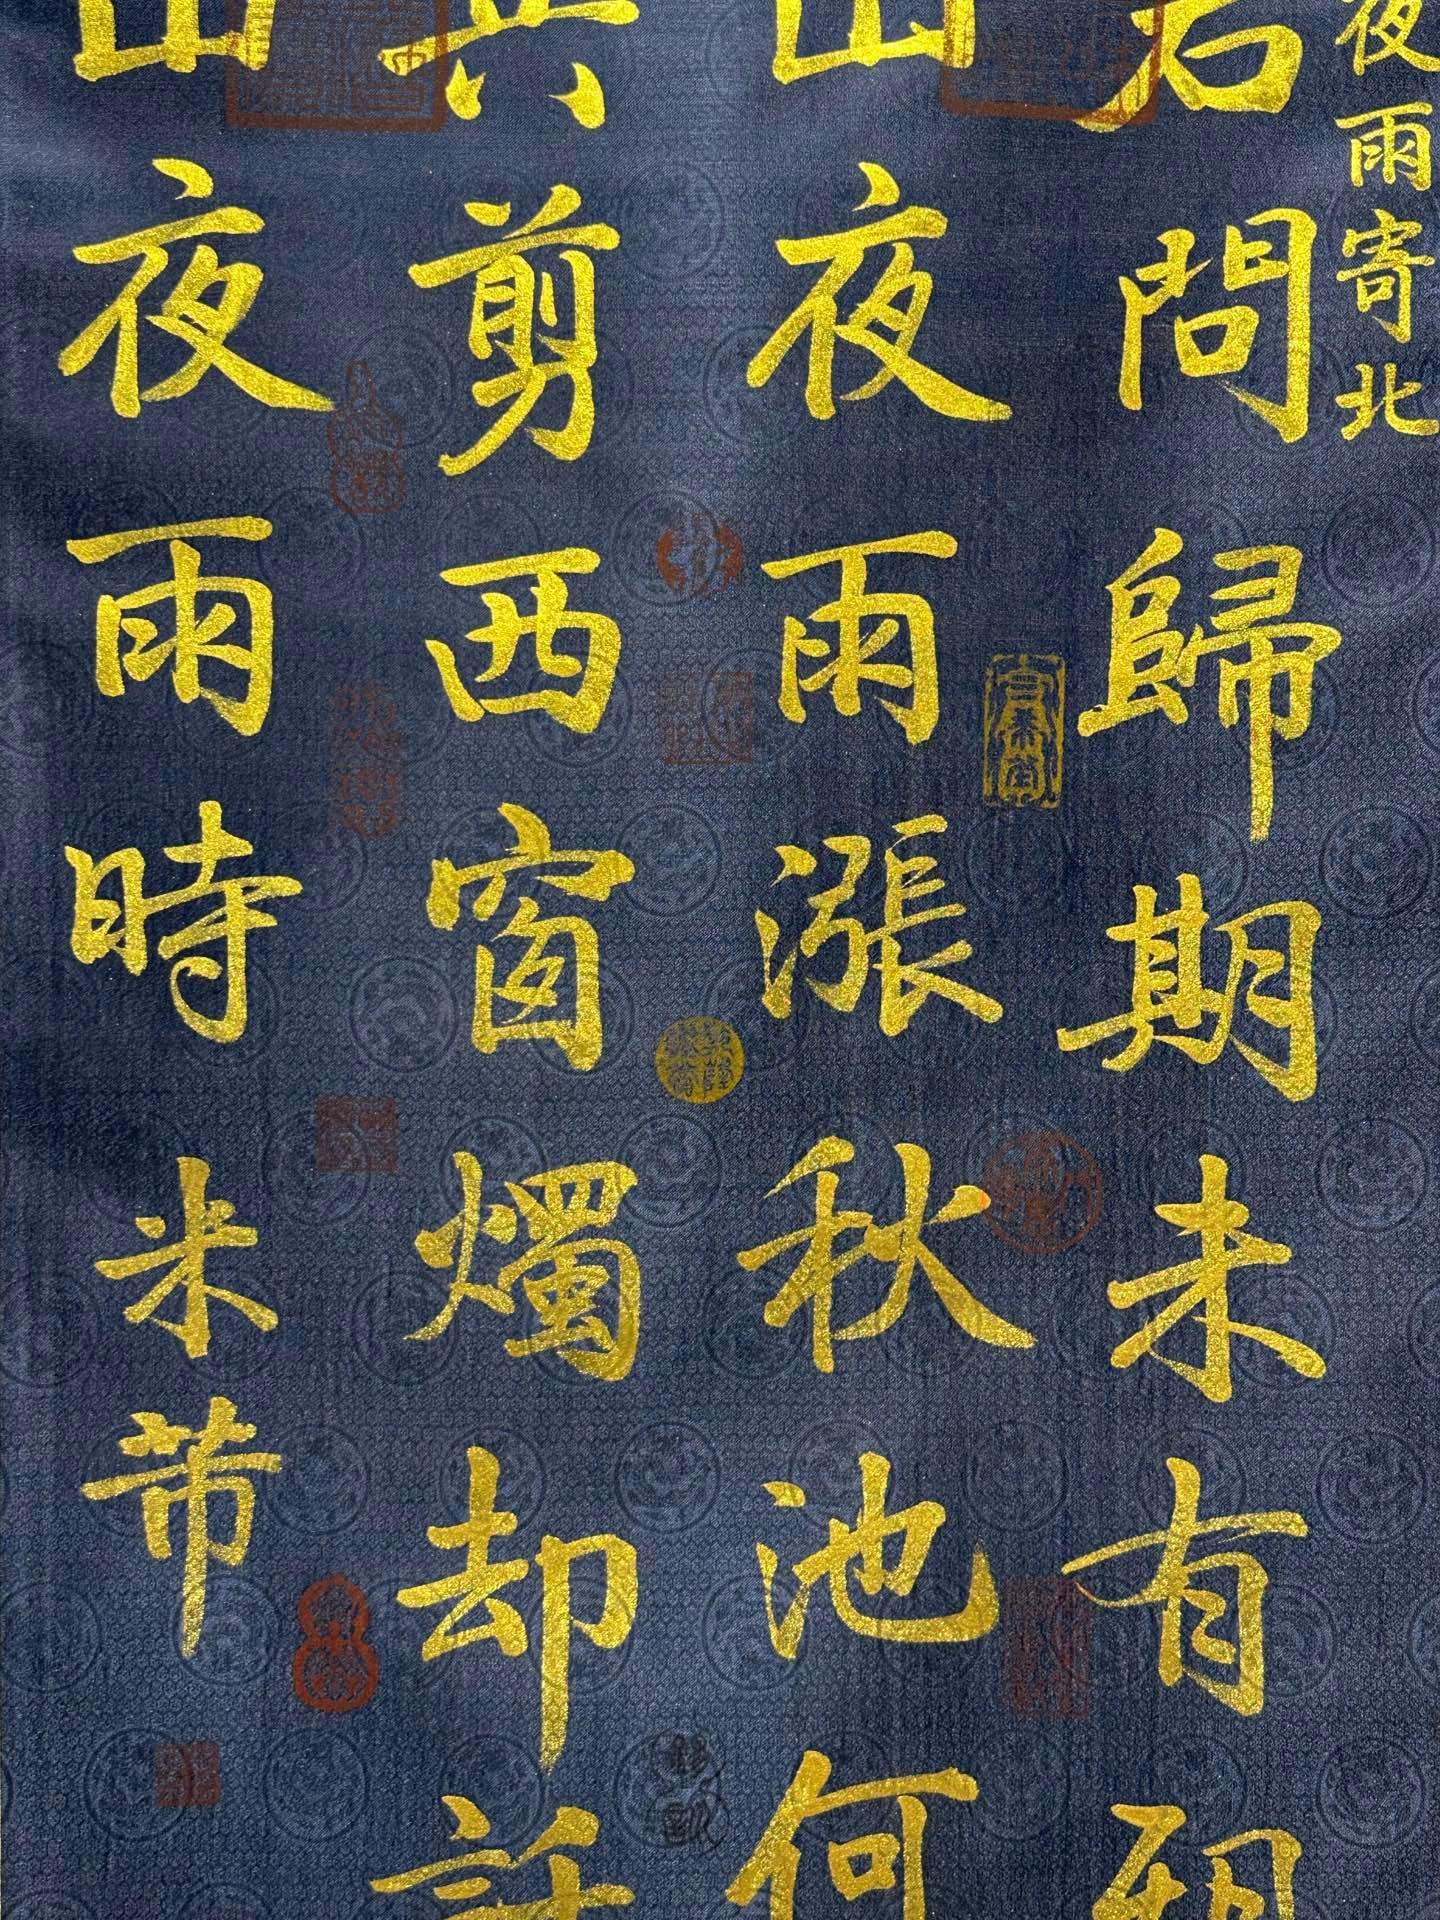 夜雨寄北
君問歸期未有期
山夜雨漲秋池何
共剪西窗燭却話
山夜雨時米芾